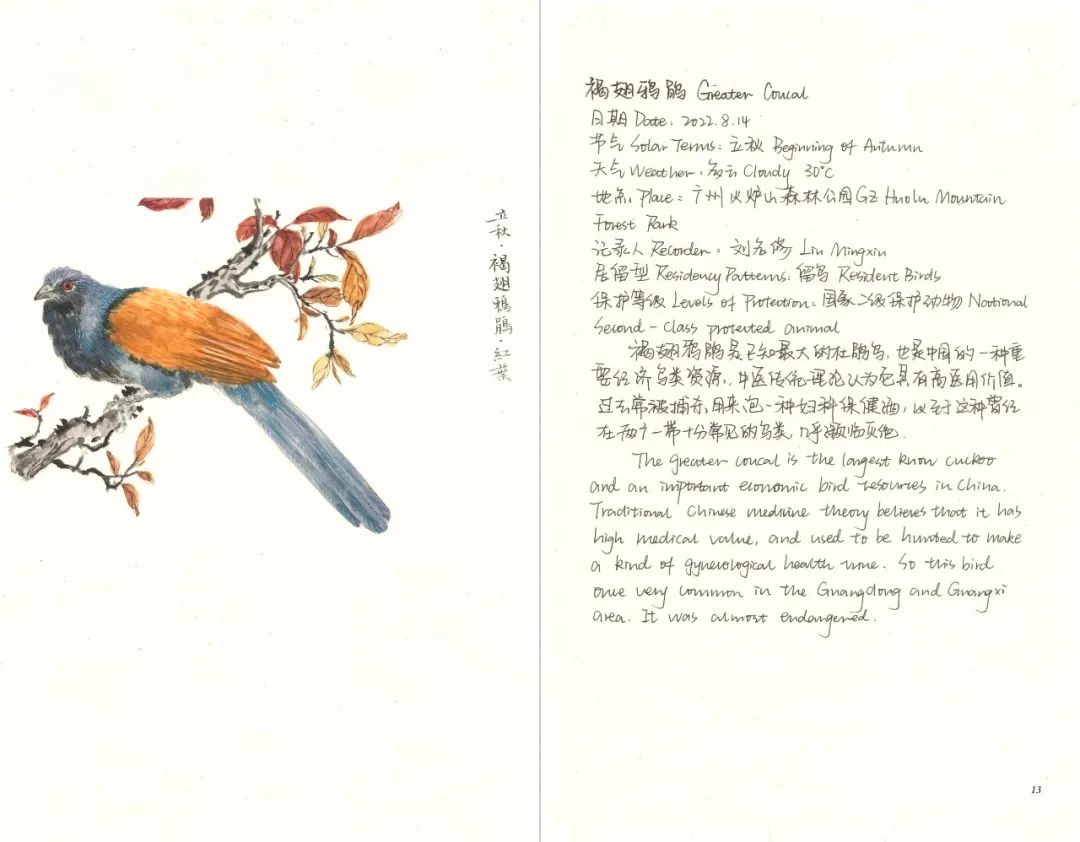 立秋·褐翅鸦鹃·紅葉
褐翅鸦鹃 Greater Coucal
日期 Date: 2022.8.14
节气 Solar Terms: 立秋 Beginning of Autumn
天气 Weather: 多云 Cloudy 30°C
地点 Place: 广州火炉山森林公园 GZ Huolu Mountain
Forest Park
记录人 Recorder: 刘名修 Liu Mingxiu
居留型 Residency Patterns: 留鸟 Resident Birds
保护等级 Levels of Protection: 国家二级保护动物 National
Second-class protected animal
褐翅鸦鹃是已知最大的杜鹃鸟,也是中国的一种重
要经济鸟类资源,中医传统理论认为它具有高医用价值。
过去常被捕杀用来泡一种妇科保健酒,以至于这种曾经
在两广一带十分常见的鸟类,几乎濒临灭绝.
The greater coucal is the largest know cuckoo
and an important economic bird resources in China.
Traditional Chinese medicine theory believes that it has
high medical value, and used to be hunted to make
a kind of gynecological health wine. So this bird
once very common in the Guangdong and Guangxi
area. It was almost endangered.
13